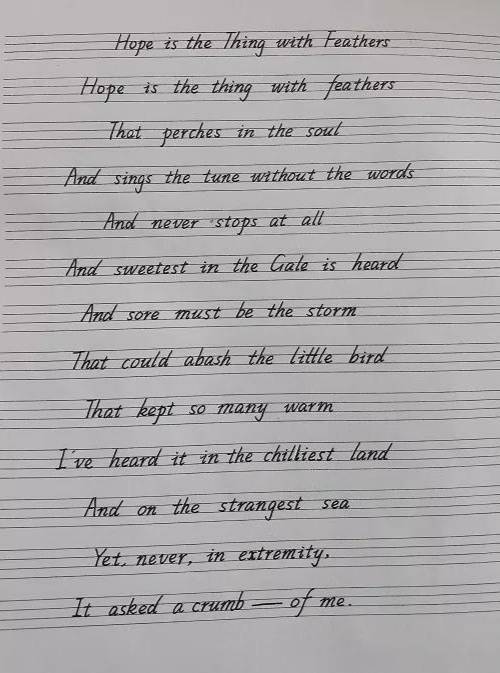 Hope is the Thing with Feathers
Hope is the thing with feathers
That perches in the soul
And sings the tune without the words
And never stops at all
And sweetest in the Gale is heard
And sore must be the storm
That could abash the little bird
That kept so many warm
I've heard it in the chilliest land
And on the strangest sea
Yet, never, in extremity,
It asked a crumb — of me.